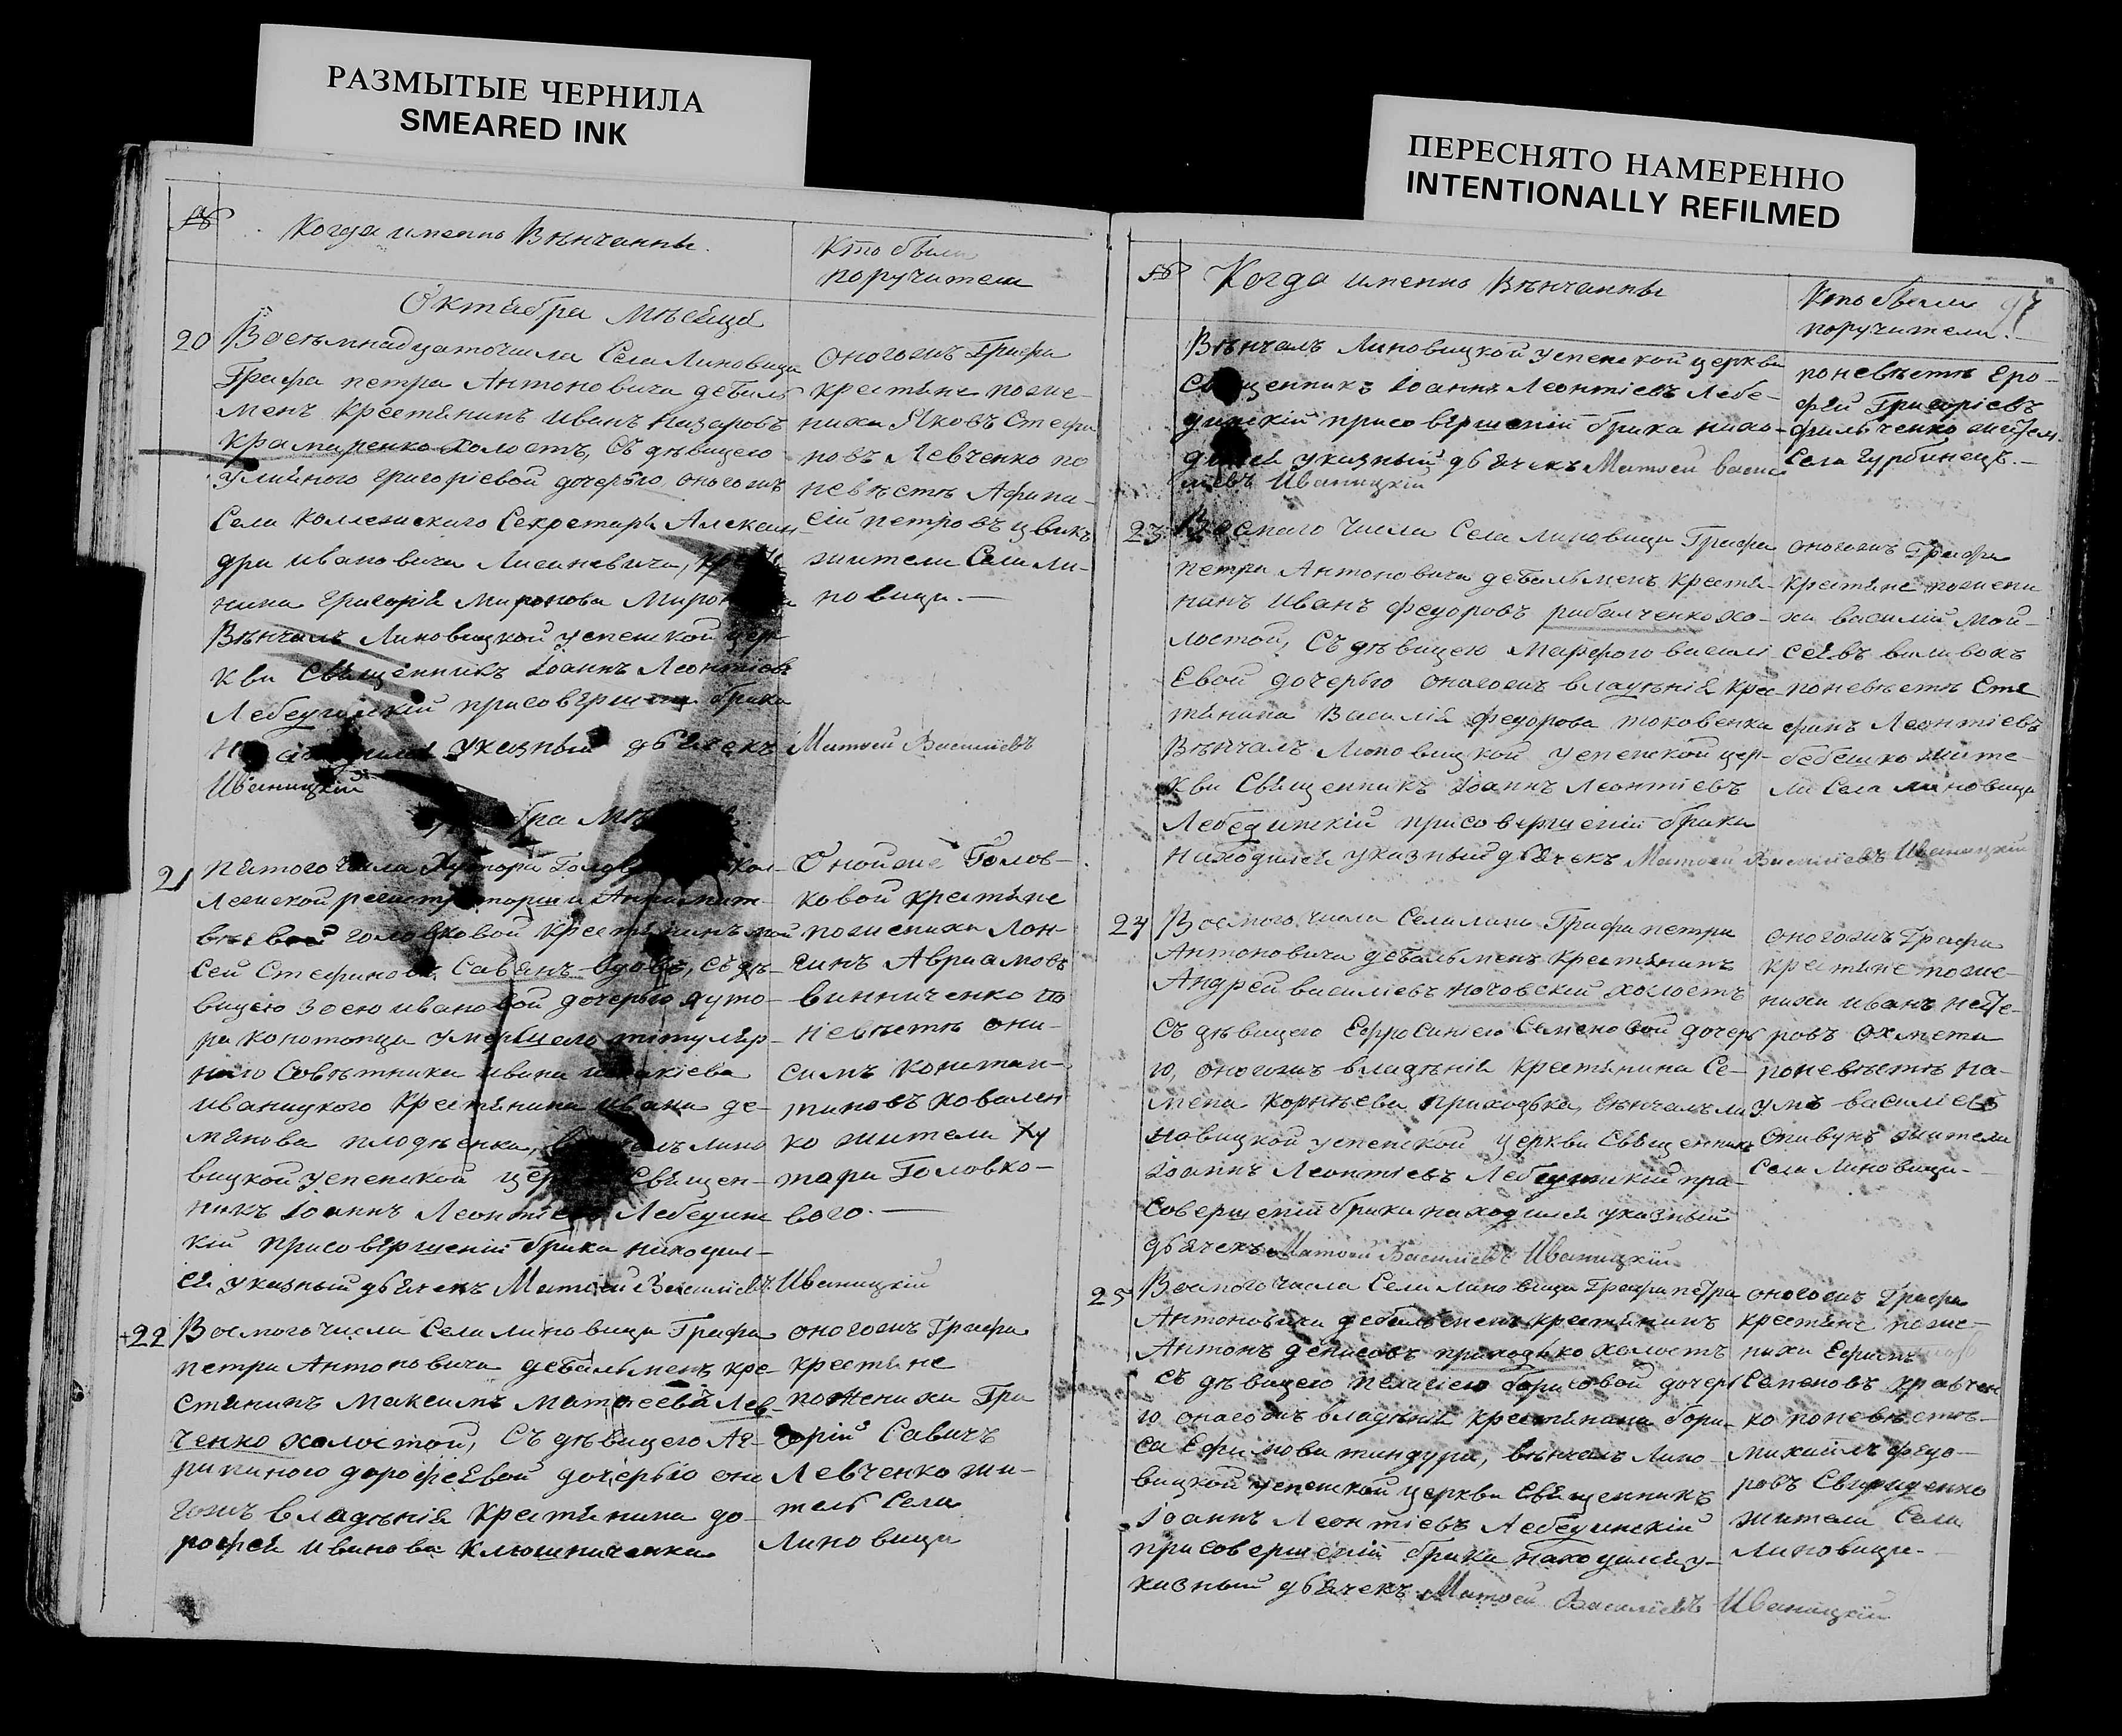 РАЗМЫТЫЕ ЧЕРНИЛА
SMEARED INK
ПЕРЕСНЯТО НАМЕРЕННО
INTENTIONALLY REFILMED
№
Когда именно Вѣнчанны.
Кто были
поручители
Октября Мѣсяца
20
Восемнадцаточисла Села Линовица
Графа петра Антоновича дебаль
менъ крестянинъ Иванъ Назаровъ
холостъ, Съ дѣвицею
Григоріевой дочерью оногожъ
Села Коллежскаго Секретаря Алексан
дра Ивановича
нина Григорія Миронова
Вѣнчалъ Линовицкой успенской цер
кви Священникъ Іоаннъ Леонтіевъ
Лебединскій присовершеніи брака
указный дьячекъ Матвей Василіевъ
Иваницкій
оногожъ Графа
крестяне поже-
ниха Яковъ Стефа
новъ Левченко по
невѣстѣ Афана-
сій петровъ цвикъ
жители Села ли-
новица.—
21
пятого числа Хутора
коллежской
крестянинъ
сей Стефановъ Савянъ вдовъ, съ дѣ-
вицею Зосею ивановой дочерью хуто-
ра конотопца умершего титуляр-
наго Совѣтника ивана
иваницкого Крестянина ивана де-
мянова лино
вицкой успенской Священ-
никъ Іоаннъ Леонтіевъ Лебедин
кій присовершеніи брака находил-
ся указный дьячекъ Матвей Василіевъ Иваницкій
Онойже Голов-
ковой крестяне
поженихи Лон-
гинъ Авраамовъ
винниченко по
невѣстѣ они-
симъ констан-
тиновъ ковален
ко жители ху
тора Головко-
вого.—
+22
Восмого числа Села линовица Графа
петра Антоновича дебальменъ кре-
стянинъ Максимъ Матфеевъ Лев-
ченко холостой, Съ дѣвицею Аг-
рипиною дорофеевой дочерью оно
гожъ владѣнія крестянина до-
рофея иванова Ключниченка
оногожъ Графа
крестяне
поженихи Гри
горій Савичъ
Левченко жи-
тель Села
Линовица
№
Когда именно Вѣнчанны
Кто были
поручители.
97
Вѣнчалъ Линовицкой успенской церкви
Священникъ Іоаннъ Леонтіевъ Лебе-
динскій присовершеніи брака нахо-
дился указный дьячекъ Матвей Васи
ліевъ Иваницкій
поневѣстѣ Еро-
фей Григоріевъ
фильченко
Села Гурбинецъ.—
23
Восмаго числа Села линовица Графа
петра Антоновича дебальменъ крестя-
нинъ Иванъ федоровъ рабалченко хо-
лостой, Съ дѣвицею Марфою васили
евой дочерью оногожъ владѣнія крес
тянина Василія федорова токовенка
Вѣнчалъ Линовицкой успенской цер-
кви Священникъ Іоаннъ Леонтіевъ
Лебединскій присовершеніи брака
находился указный дьячекъ Матвей Василіевъ Иваницкій
оногожъ Графа
крестяне пожени
хи василій Мой-
сеевъ виливокъ
поневѣстѣ Сте
фанъ Леонтіевъ
бебешко жите-
ли Села линовица
24
Восмого числа Села Графа петра
Антоновича дебальменъ крестянинъ
Андрей василіевъ ночовскій холостъ
Съ дѣвицею Ефросиніею Семеновой дочерь
ю, оногожъ владѣнія крестянина Се-
мена Корнѣева приходька, вѣнчалъ ли
новицкой успенской церкви Священникъ
Іоаннъ Леонтіевъ Лебединскій при-
совершеніи брака находился указный
дьячекъ Матвей Василіевъ Иваницкій
оногожъ Графа
крестяне поже-
ниха иванъ
ровъ
поневѣстѣ на-
умъ василіевъ
Опивунъ жители
Села Линовица-
25
Восмого числа Села Линовица Графа петра
Антоновича дебальменъ крестянинъ
Антонъ денисовъ приходько холостъ
Съ дѣвицею пелагіею борисовой дочерь
ю оногожъ владѣнія крестянина бори-
са Ефимова тиндура, вѣнчалъ Лино-
вицкой успенской церкви Священникъ
Іоаннъ Леонтіевъ Лебединскій
присовершеніи брака находился у-
казный дьячекъ Матвей Василіевъ Иваницкій
оногожъ Графа
крестяне поже-
ниха Ефимъ
Семеновъ кравчен
ко поневѣстѣ-
михаилъ федо-
ровъ Свириденко
жители Села
Линовица.-